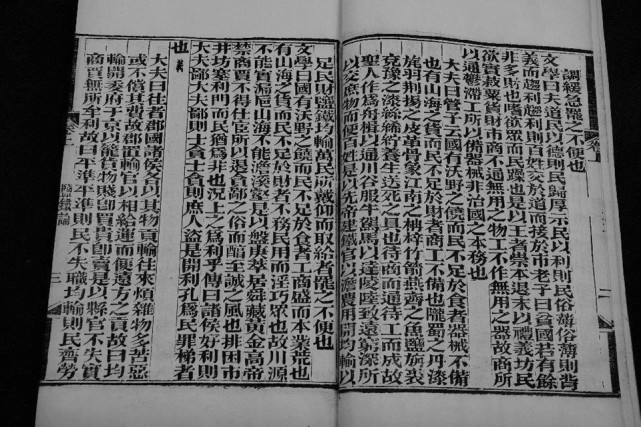 調緩急罷之不便也
文學曰夫導民以德則民歸厚示民以利則民俗薄俗薄則背
義而趨利趨利則百姓交於道而接於市老子曰貧國若有餘
非多財也嗜欲眾而民躁也是以王者崇本退末以禮義坊民
欲實菽粟貨財市商不通無用之物工不作無用之器故商所
以通鬱滯工所以備器械非治國之本務也
大夫曰管子云國有沃野之饒而民不足於食者器械不備
也有山海之貨而民不足於財者商工不備也隴蜀之丹漆
旄羽荊揚之皮革骨象江南之柟梓竹箭燕齊之魚鹽旃裘
兗豫之漆絲絺紵養生送死之具也待商而通待工而成故
聖人作爲舟楫以通川谷服牛駕馬以達陵陸致遠窮深所
以交庶物而便百姓是以先帝建鐵官以贍農用開均輸以
足民財鹽鐵均輸萬民所戴仰而取給者罷之不便也
文學曰國有沃野之饒而民不足於食者工商盛而本業荒也
有山海之貨而民不足於財者不務民用而淫巧眾也故川源
不能實漏巵山海不能贍溪壑是以盤庚萃居舜藏黃金高帝
禁商賈不得仕宦所以遏貪鄙之俗而醇至誠之風也排困市
井坊塞利門而民猶爲非也況上之爲利乎傳曰諸侯好利則
大夫鄙大夫鄙則士貪士貪則庶人盜是開利孔爲民罪梯者
也
大夫曰往者郡國諸侯各以其物貢輸往來煩雜物多苦惡
或不償其費故郡置輸官以相給運而便遠方之貢故曰均
輸開委府于京以籠貨物賤即買貴則賣是以縣官不失實
商賈無所牟利故曰平準平準則民不失職均輸則民齊勞
三